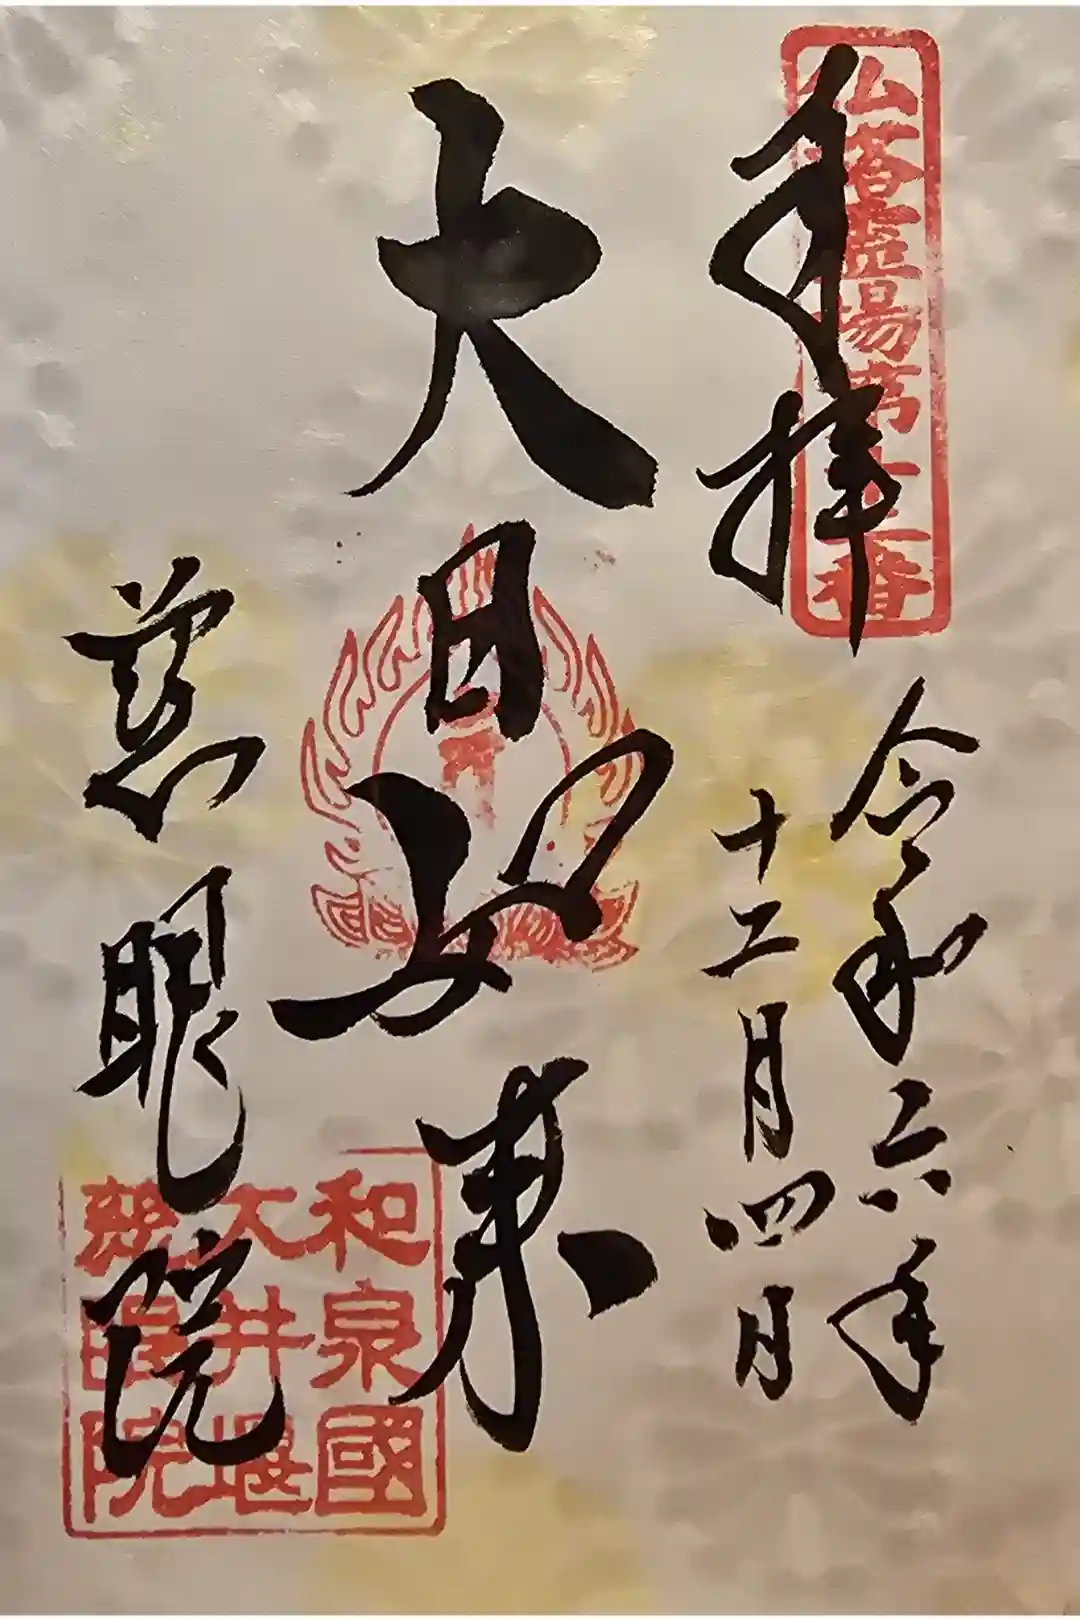 仏塔霊場第十二番
奉拝
令和六年
十二月四日
大日如来
慈眼院
和泉國
大井堰
慈眼院